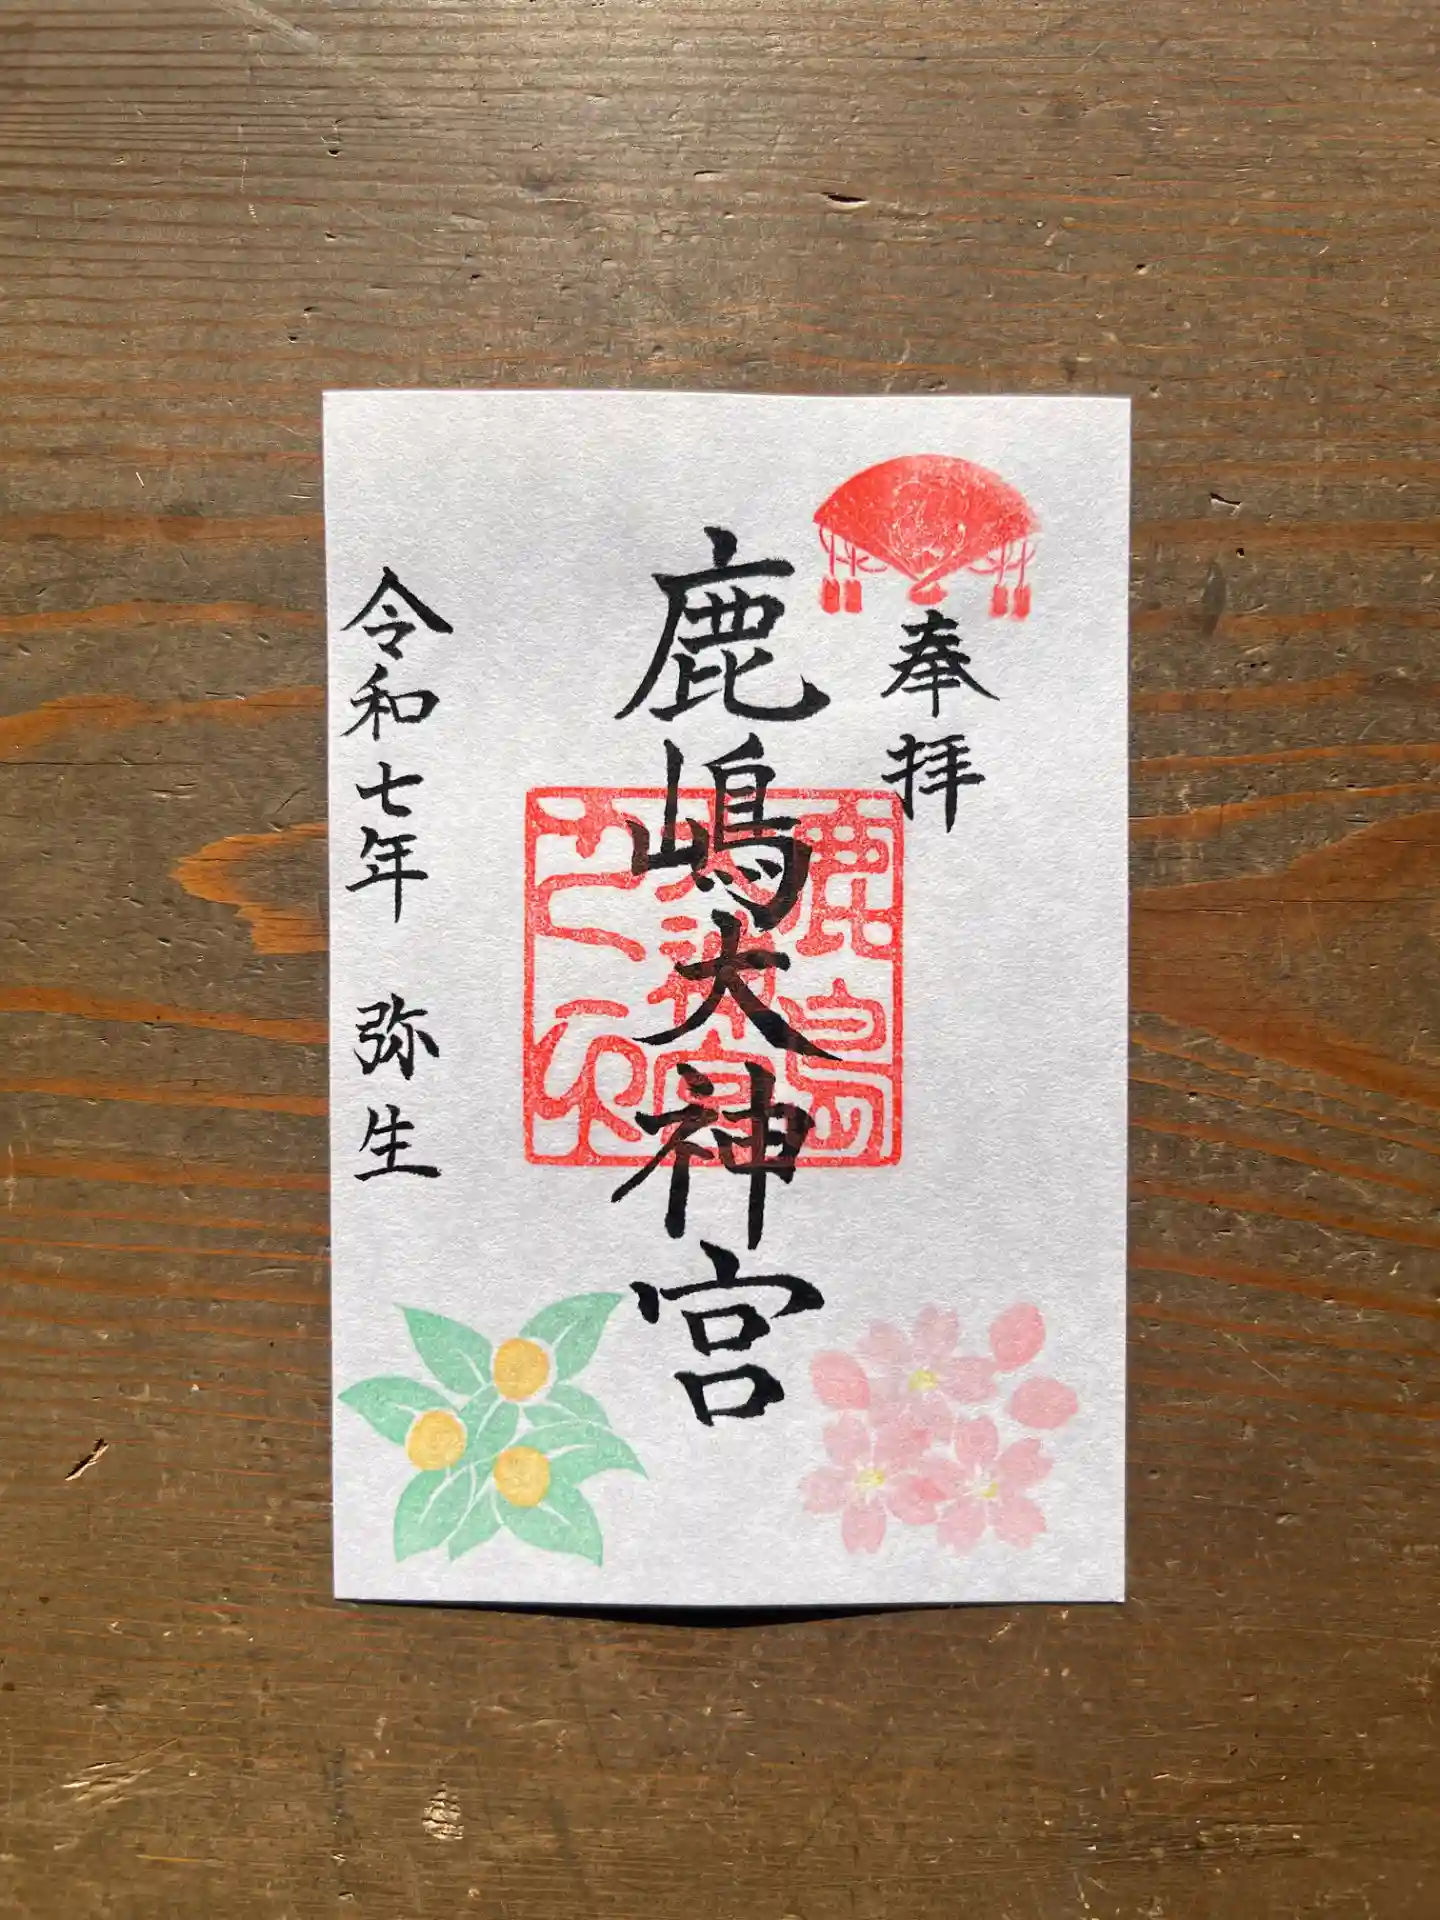 奉拝
鹿嶋大神宮
令和七年 弥生